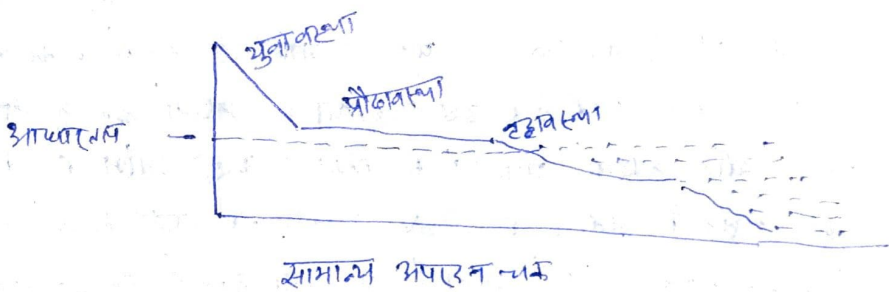 युवावस्था
प्रौढावस्था
वृद्धावस्था
आधारतल
सामान्य अपरदन चक्र